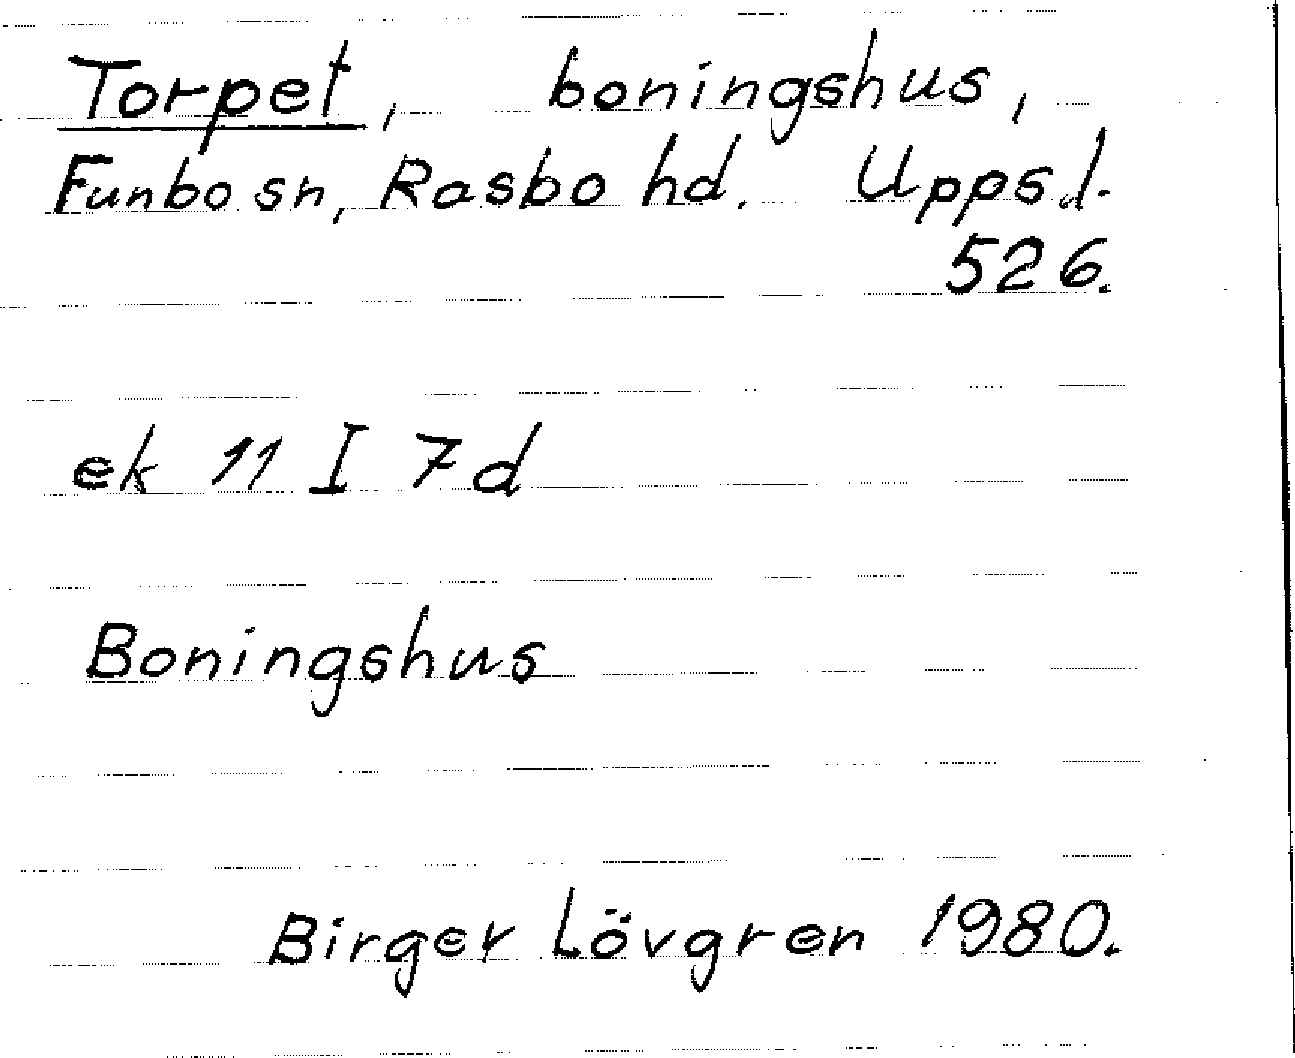 Torpet, boningshus,
Funbo sn, Rasbo hd. Upps.l.
526.
ek 11 I 7d
Boningshus
Birger Lövgren 1980.